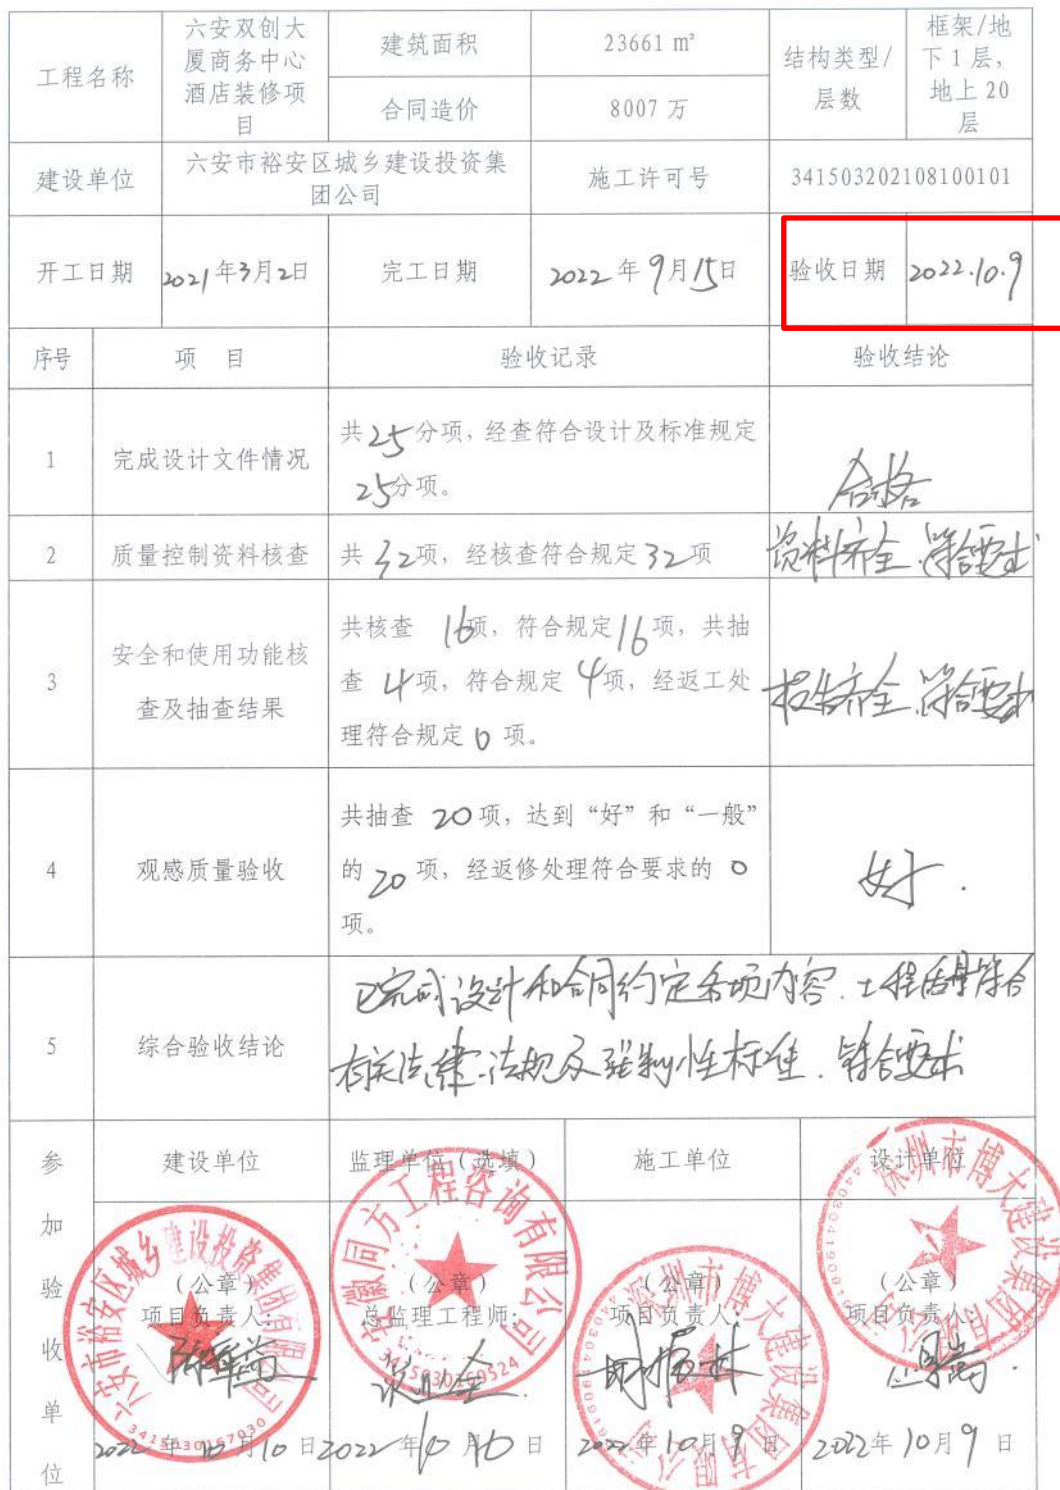 工程名称
六安双创大
厦商务中心
酒店装修项
目
建筑面积
23661 m²
结构类型/
层数
框架/地
下1层,
地上20
层
合同造价
8007 万
建设单位
六安市裕安区城乡建设投资集
团公司
施工许可号
341503202108100101
开工日期
2021年3月2日
完工日期
2022年9月15日
验收日期
2022.10.9
序号
项 目
验收记录
验收结论
1
完成设计文件情况
共25分项, 经查符合设计及标准规定
25分项。
合格
2
质量控制资料核查
共32项, 经核查符合规定32项
资料齐全.符合要求
3
安全和使用功能核
查及抽查结果
共核查 16项, 符合规定16项, 共抽
查 4项, 符合规定 4项, 经返工处
理符合规定 0 项。
报告齐全.符合要求
4
观感质量验收
共抽查 20项, 达到“好”和“一般”
的 20 项, 经返修处理符合要求的 0
项。
好.
5
综合验收结论
已完成设计和合同约定各项内容.工程质量符合
有关法律.法规及强制性标准.符合要求
参加验收单位
建设单位
监理单位(选填)
施工单位
设计单位
(公章)
项目负责人:
(公章)
总监理工程师:
(公章)
项目负责人:
(公章)
项目负责人:
2022年10月10日
2022年10月10日
2022年10月9日
2022年10月9日
六安市裕安区城乡建设投资集团有限公司
3415030167030
安徽同方工程咨询有限公司
深圳市博大建设集团有限公司
深圳市博大建设集团有限公司